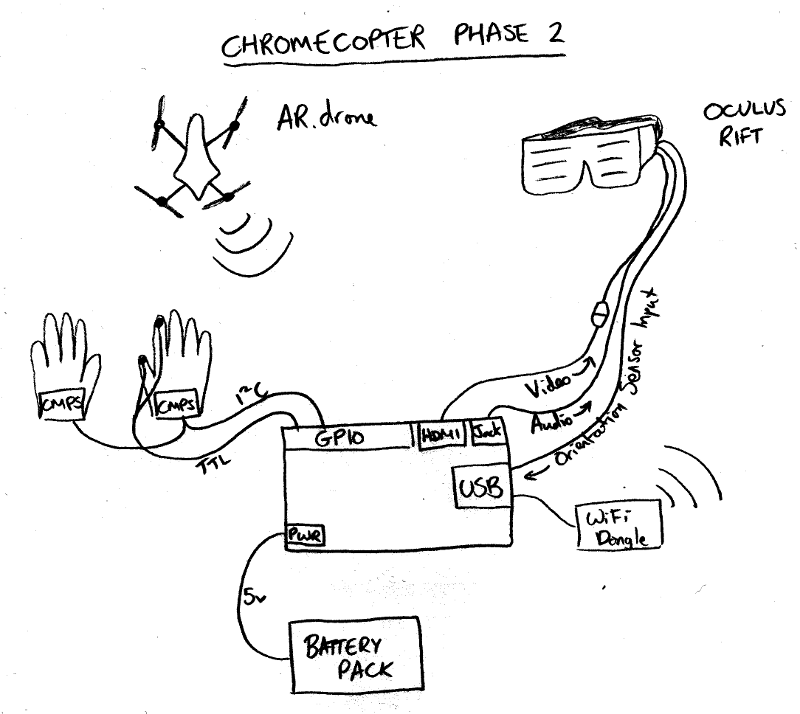 CHROMECOPTER PHASE 2
AR.drone
OCULUS
RIFT
CMPS
CMPS
I²C
TTL
GPIO
HDMI
Jack
USB
PWR
Video →
Audio →
← Orientation Sensor Input
WiFi
Dongle
5v
BATTERY
PACK